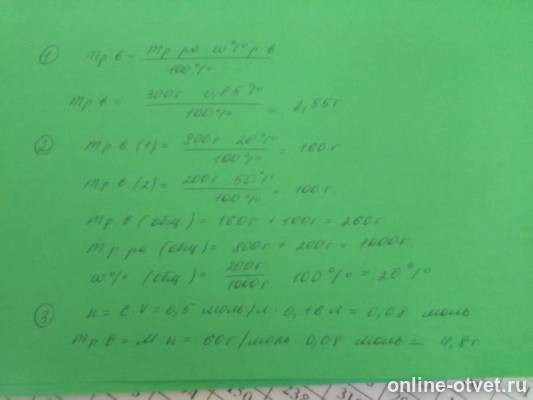 ① mр.в = mр-ра · w% р.в / 100%
mр.в = 300г · 0,85% / 100% = 2,55г
② mр.в (1) = 800г · 20% / 100% = 160г
mр.в (2) = 200г · 50% / 100% = 100г
mр.в (общ) = 160г + 100г = 260г
mр-ра (общ) = 800г + 200г = 1000г
w% (общ) = 260г / 1000г · 100% = 26%
③ n = C · V = 0,5 моль/л · 0,16 л = 0,08 моль
mр.в = M · n = 60г/моль · 0,08 моль = 4,8г
online-otvet.ru